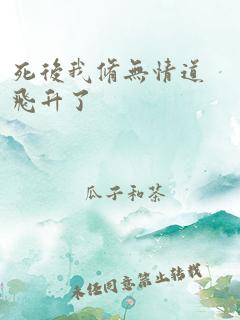 死後我脩無情道
飛升了
瓜子和茶
未经同意禁止转载